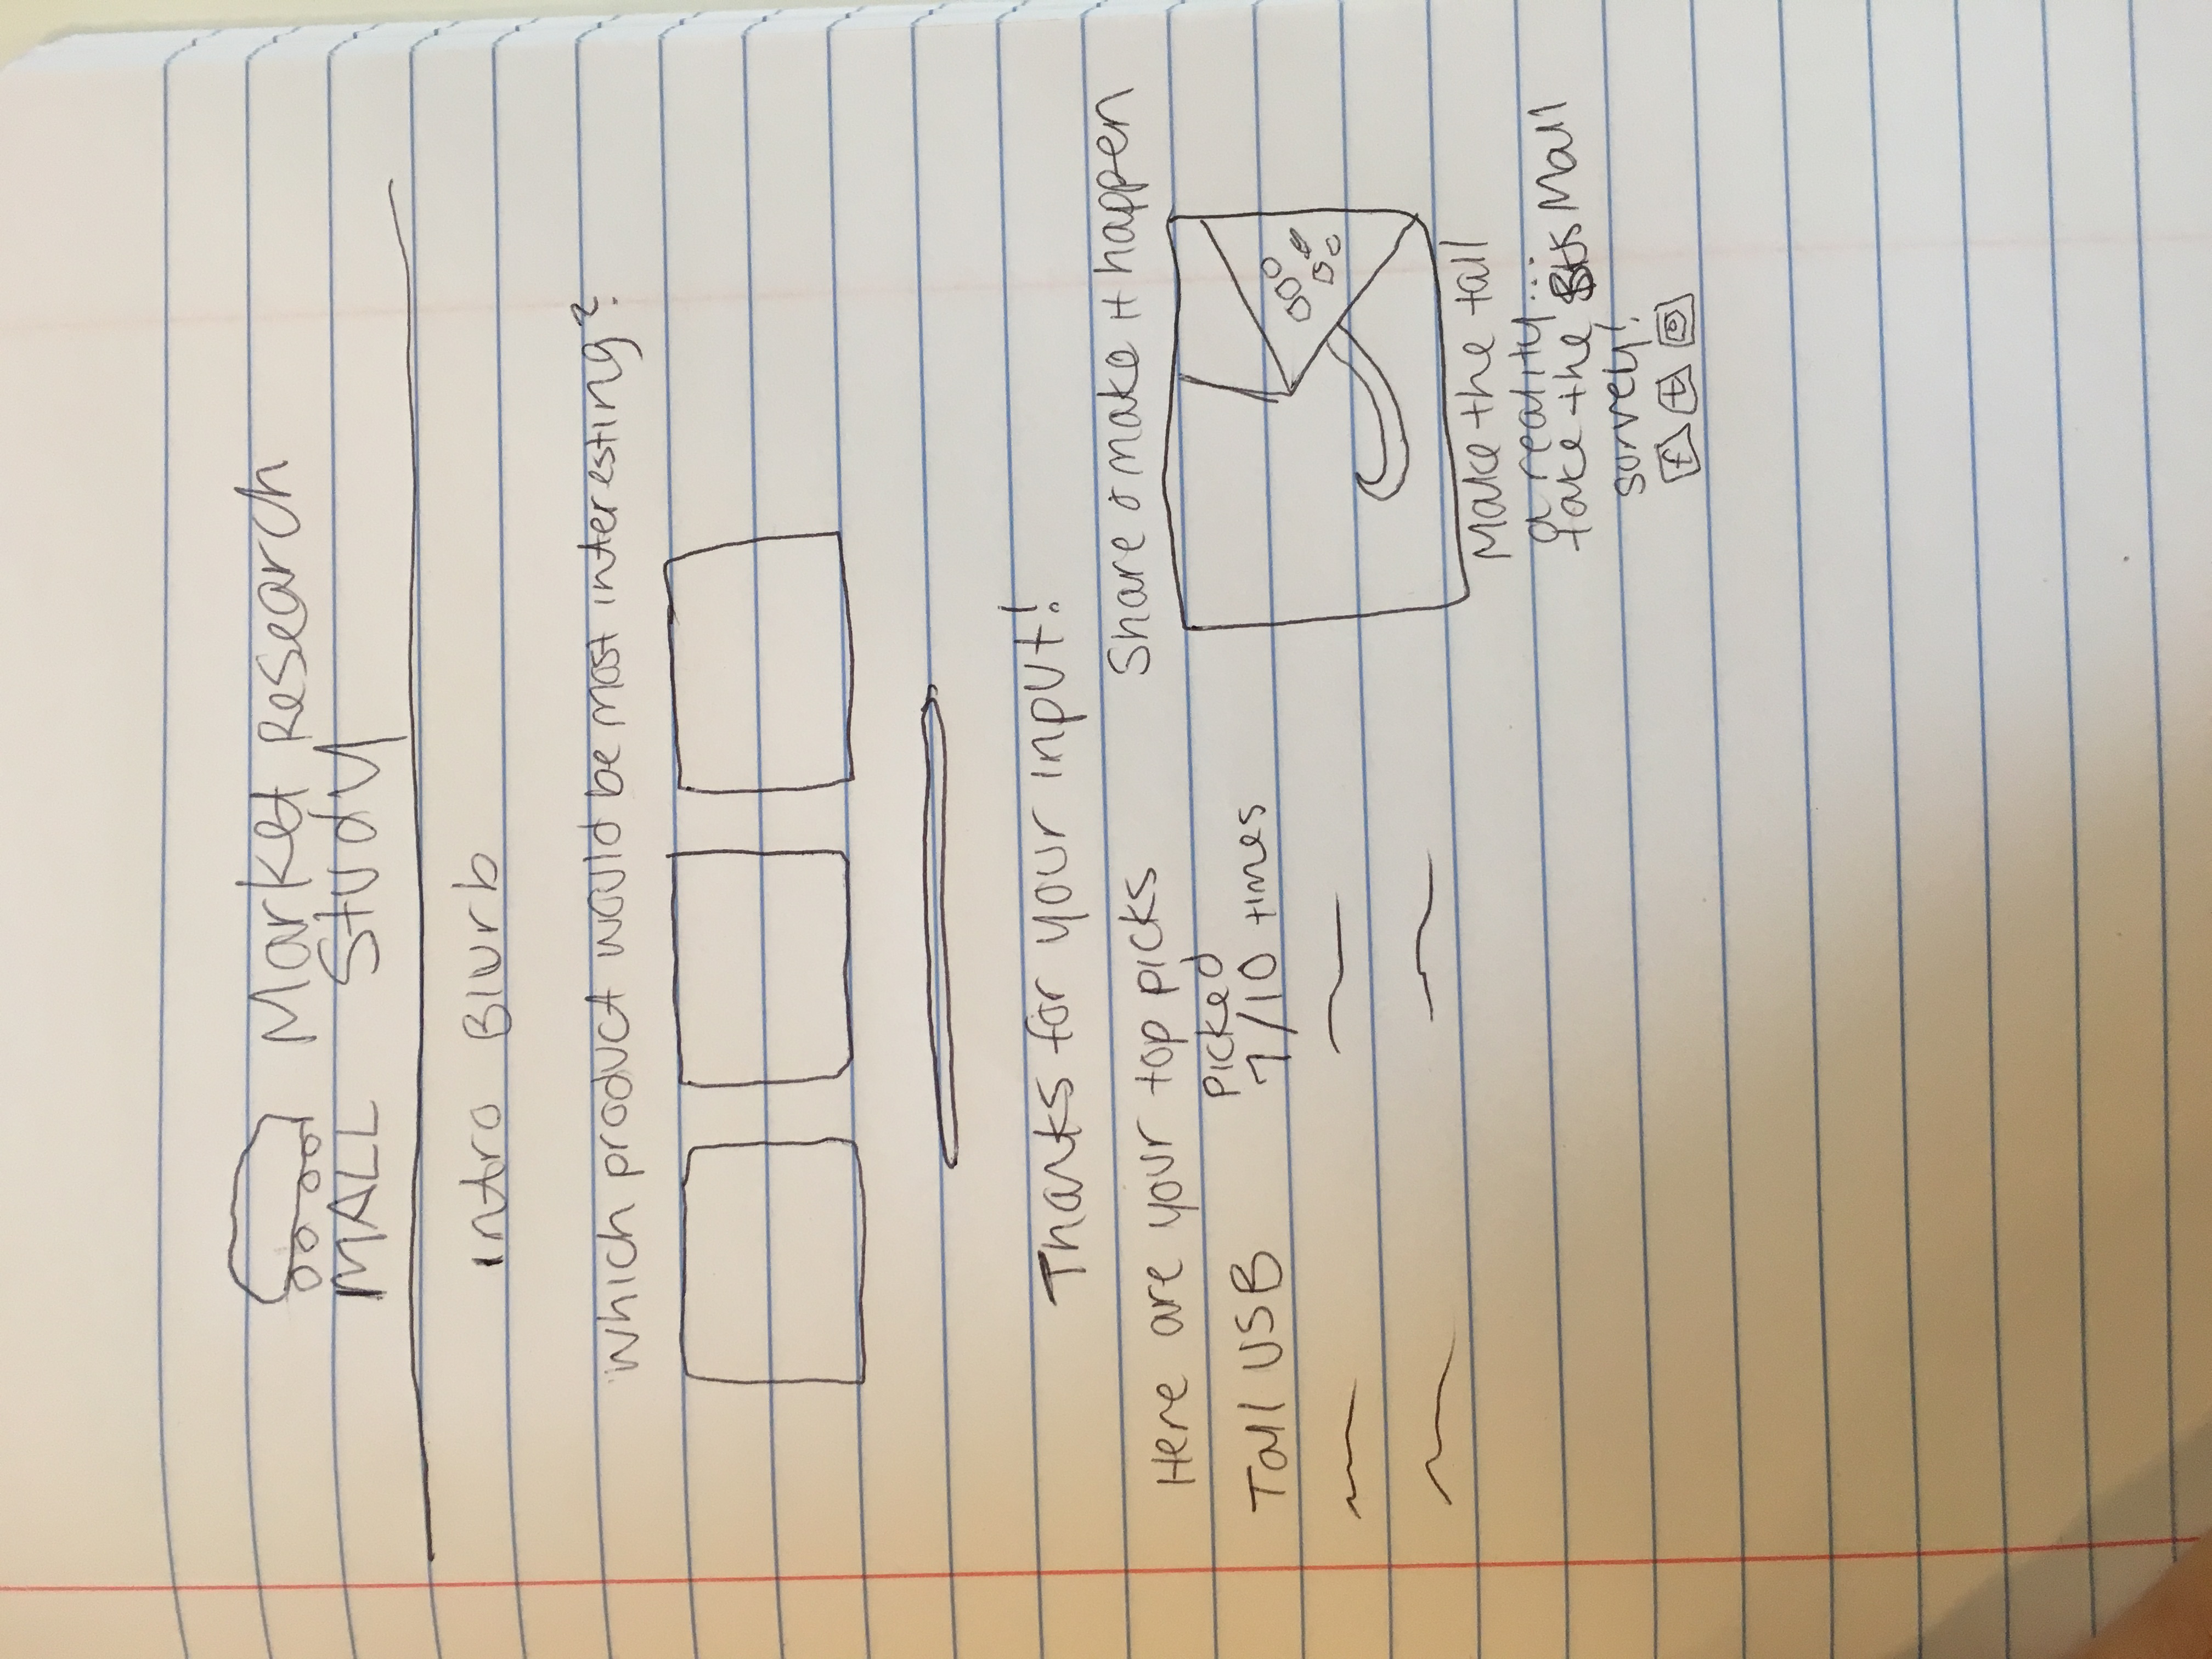 MALL
Market Research
Study
Intro Blurb
Which product would be most interesting?
Thanks for your input!
Here are your top picks
Tall USB
Picked
7/10 times
Share & make it happen
Make the tall
a reality...
take the Bus Mall
survey!
f t